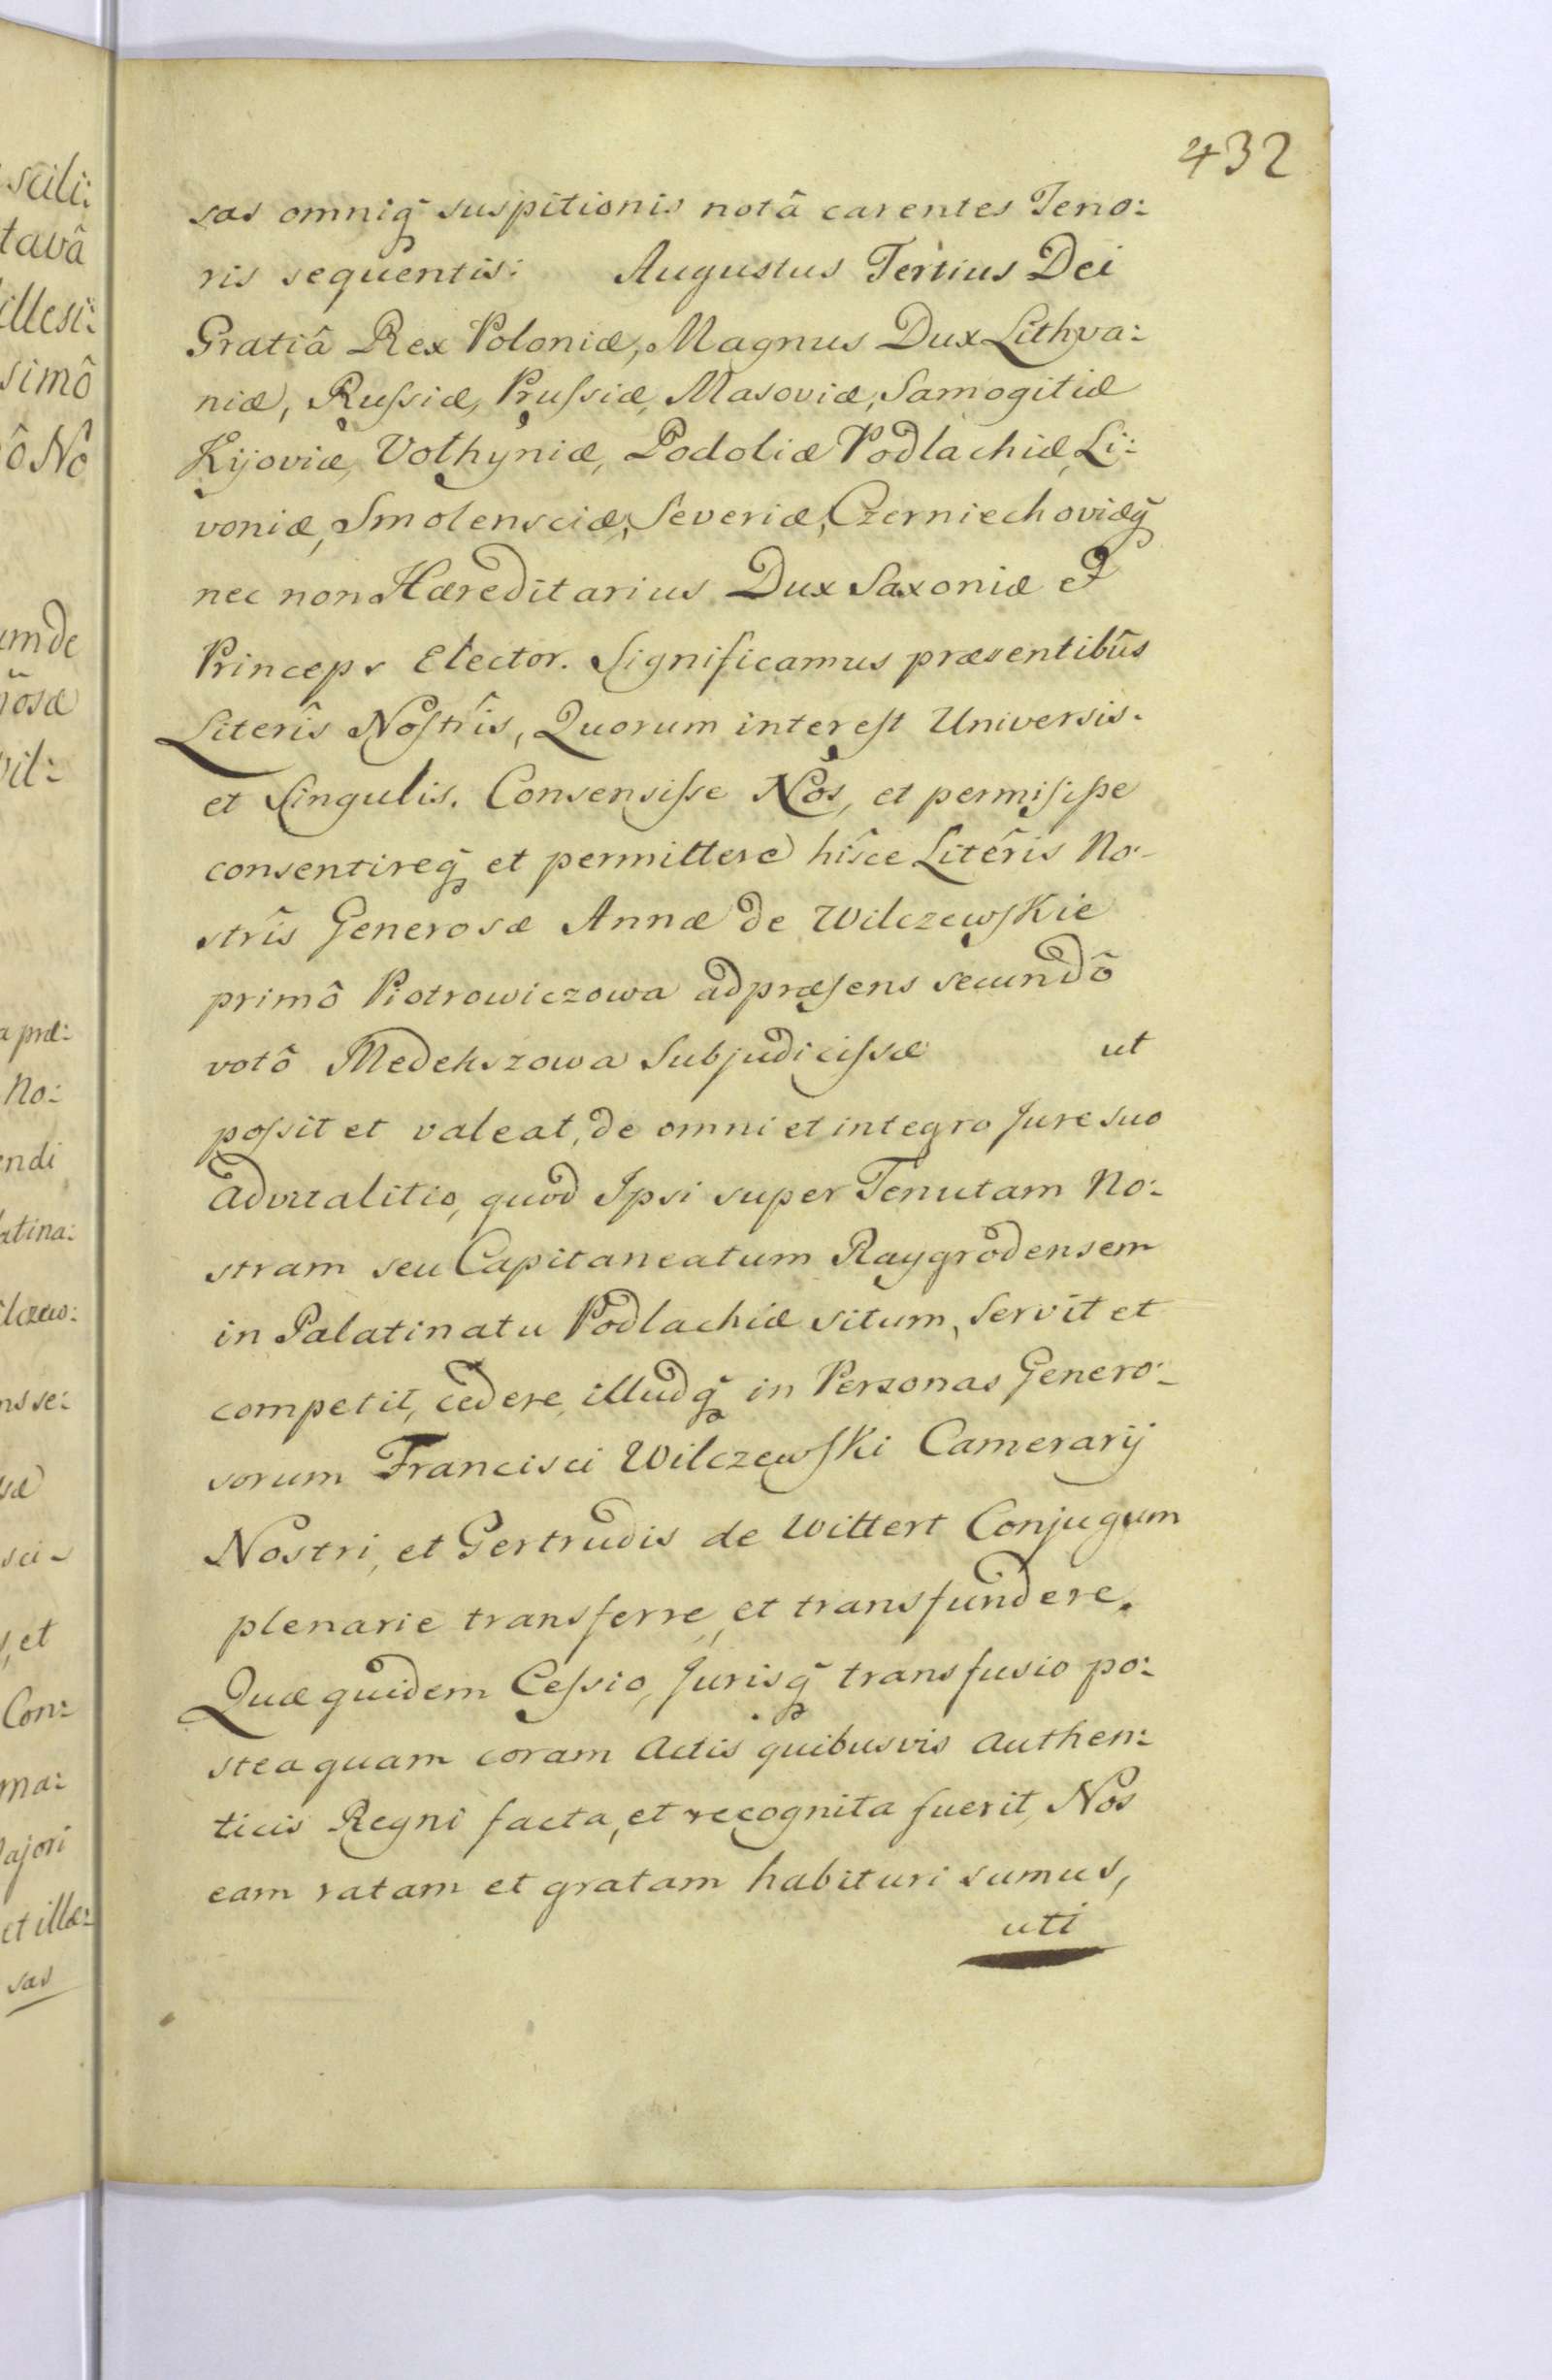 432
sas omniq̃ suspitionis notâ carentes Teno:
ris sequentis: Augustus Tertius Dei
Gratiâ Rex Poloniæ, Magnus Dux Lithva:
niæ, Ruſsiæ, Pruſsiæ, Masoviæ, Samogitiæ
Kijoviæ, Volhyniæ, Podoliæ Podlachiæ, Li:
voniæ, Smolensciæ, Severiæ, Czerniechoviæq̃
nec non Hæreditarius Dux Saxoniæ et
Princeps Elector. Significamus præsentibûs
Literîs Noſtrîs, Quorum intereſt Universis.
et Singulis. Consensiſse Nos, et permiſiſse
consentireq̃ et permittere hîsce Literîs No-
strîs Generosæ Annæ de Wilczewſkie
primô Piotrowiczowa ad præſens secundô
votô Medekszowa Subjudiciſsæ ut
poſsit et valeat, de omni et integro Jure suo
advitalitio, quod Ipsi super Tenutam No:
stram seu Capitaneatum Raygrodensem
in Palatinatu Podlachiæ situm, servit et
competit, cedere, illudq̃ in Personas Genero:
sorum Francisci Wilczewſki Camerarij
Nostri, et Gertrudis de Wittert Conjugum
plenarie transferre, et transfundere.
Quæ quidem Ceſsio, Jurisq̃ transfusio po:
stea quam coram Actis quibusvis Authen:
ticis Regni facta, et recognita fuerit, Nos
eam ratam et gratam habituri sumus,
uti
scili:
tavâ
illesi:
simô
ô No
um de
vil:
a præ:
No:
endi
atina:
ilczew:
ns se:
sci-
s, et
Con:
ma:
ajori
et illæ:
sas